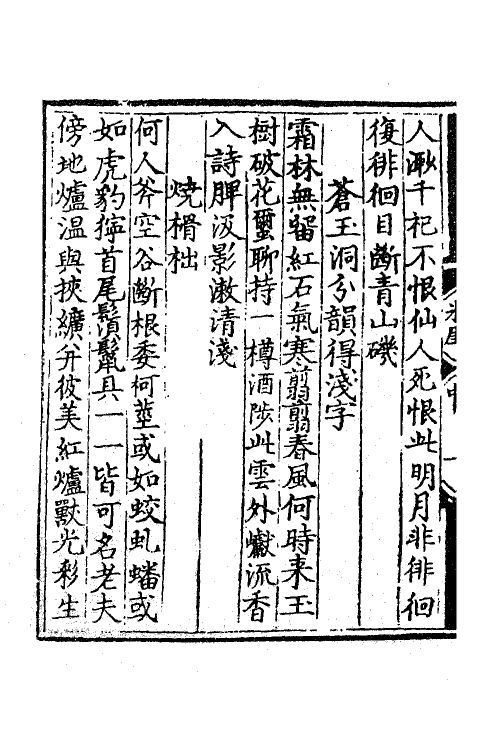 人㴱千杞不恨仙人死恨此明月非徘徊
復徘徊目斷青山磯
蒼玉洞分韻得淺字
霜林無留紅石氣寒翦翦春風何時来玉
樹破花璽聊持一樽酒陟此雲外巘流香
入詩脾汲影潄清淺
燒榾柮
何人斧空谷斷根委何莖或如蛟虬蟠或
如虎豹獰首尾鬚鬛具一一皆可名老夫
傍地爐温與挾纊并彼美紅爐獸光彩生